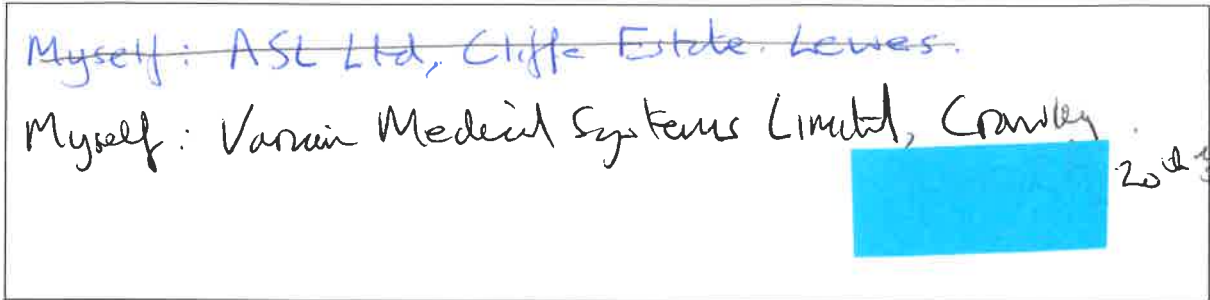 Myself: ASL Ltd, Cliffe Estate. Lewes.
Myself: Varian Medical Systems Limited, Crawley.
20th